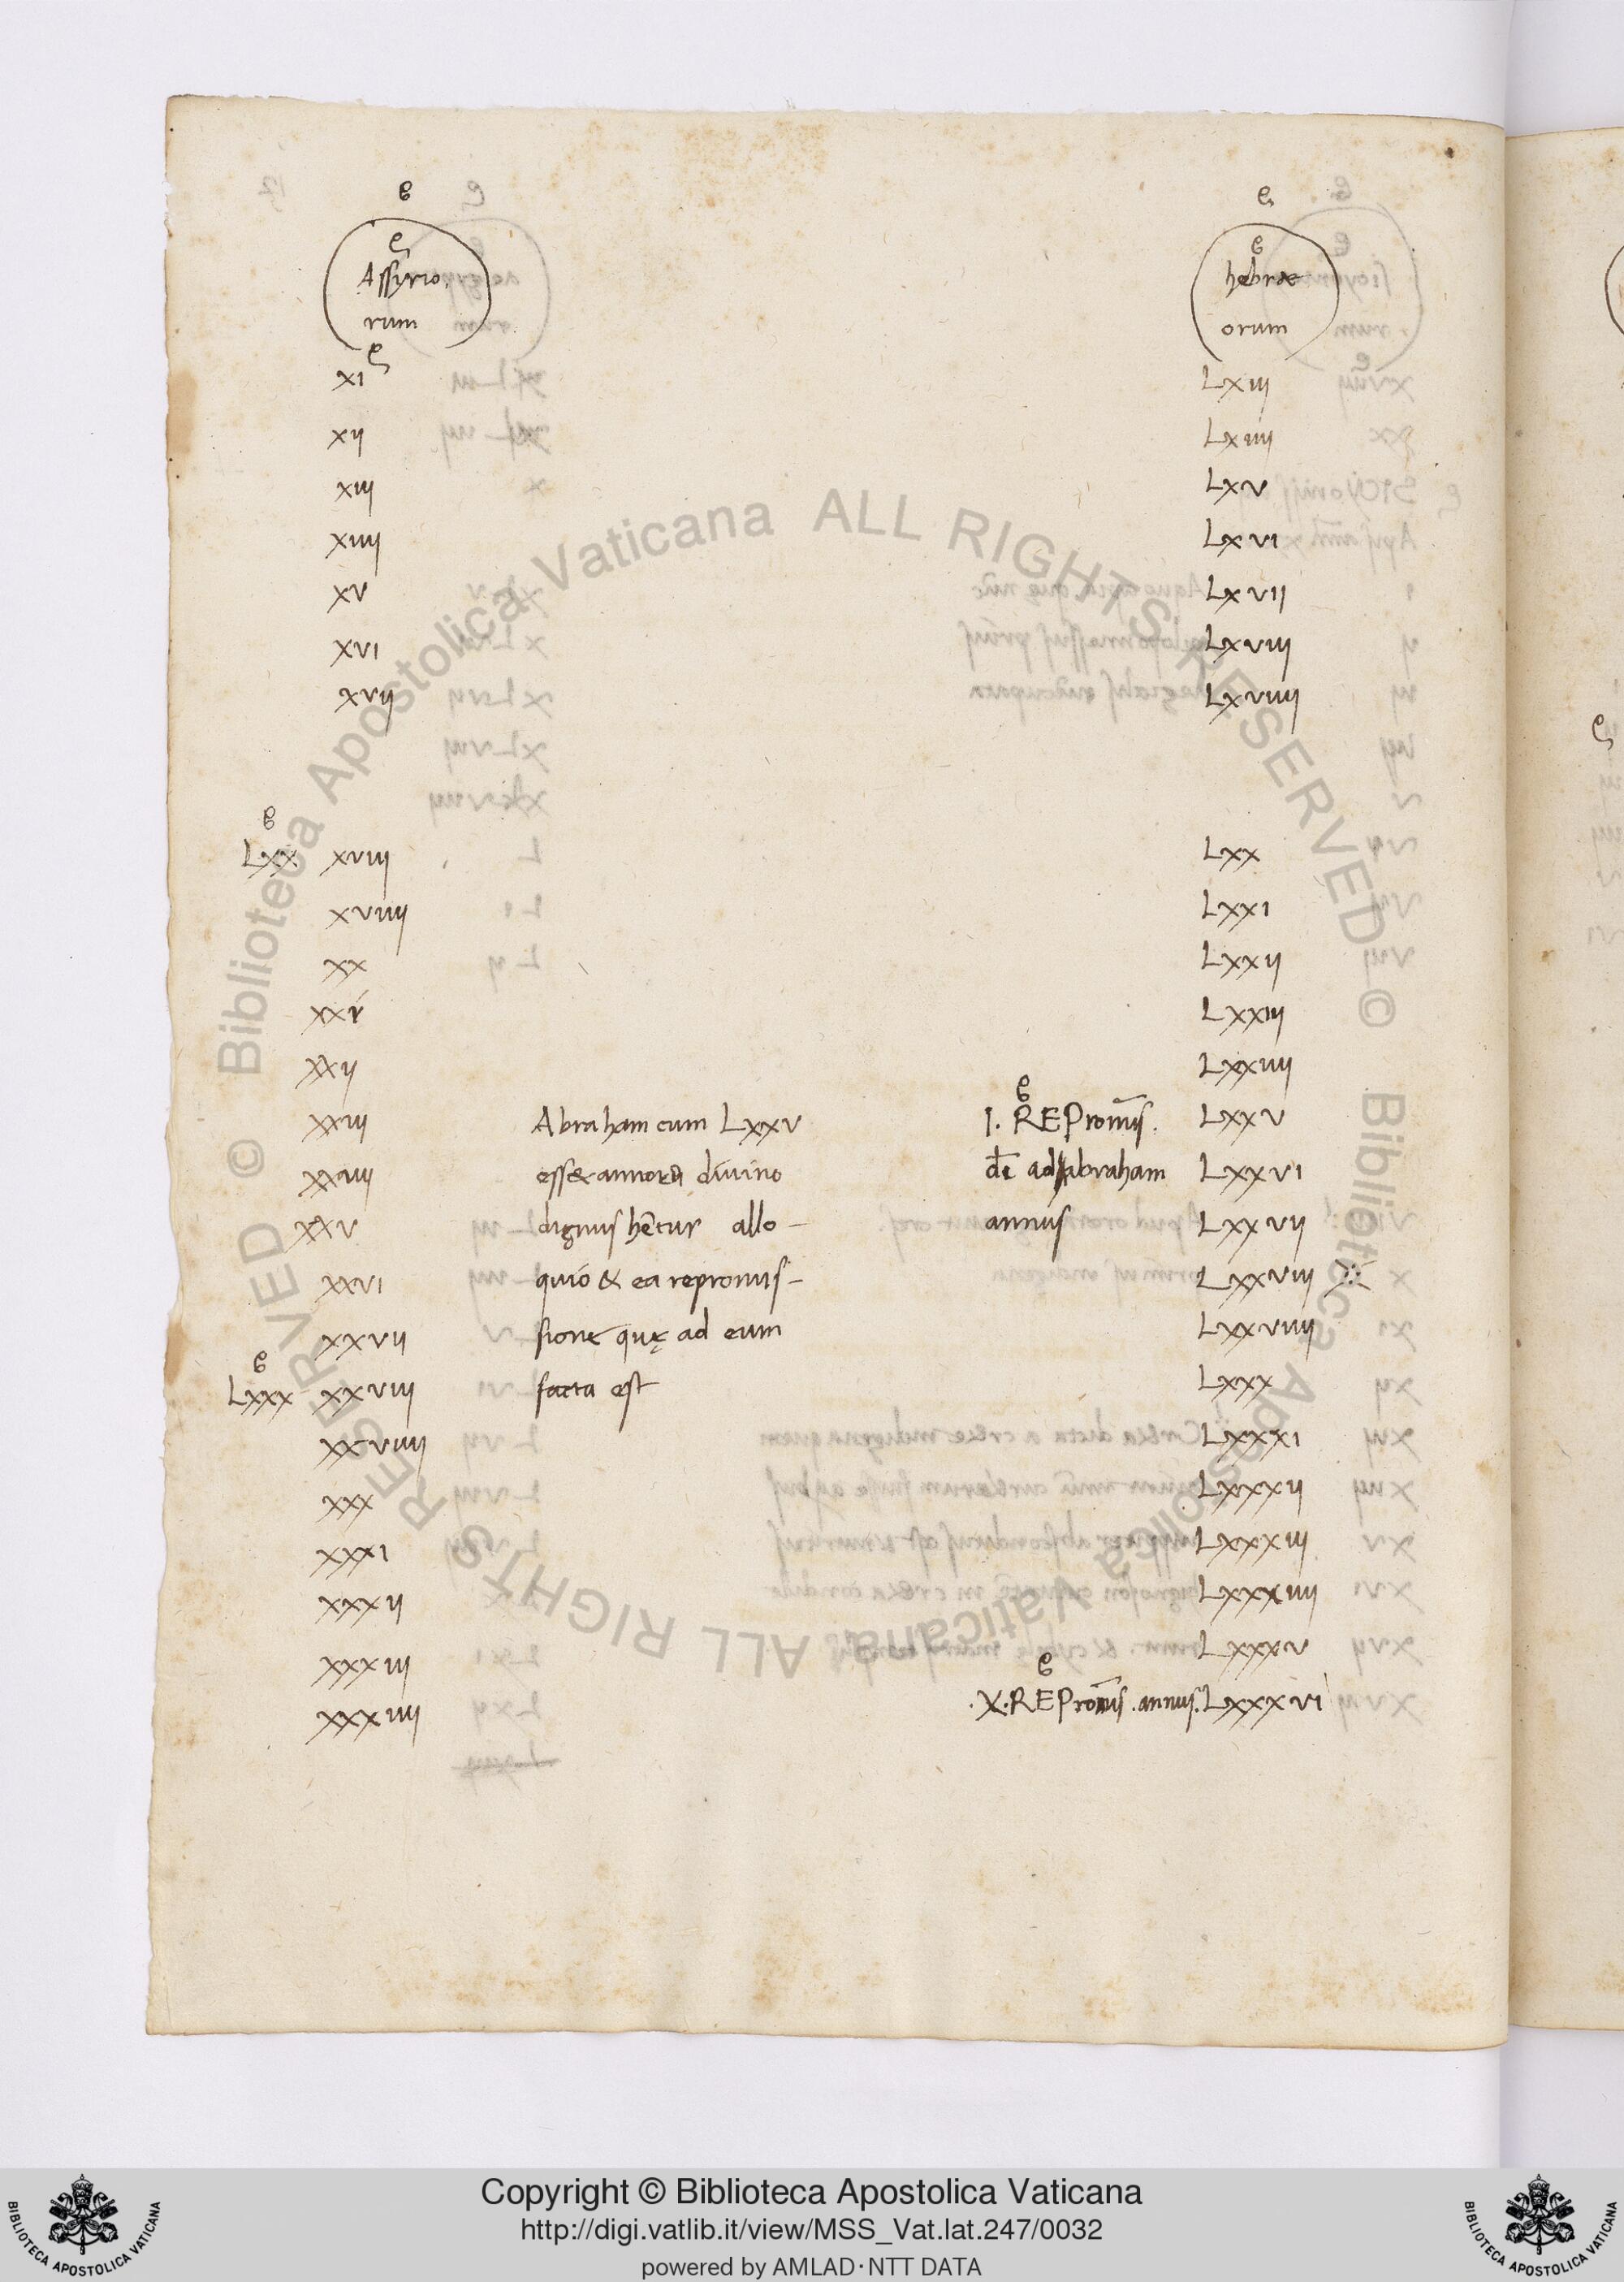 Assyrio.
rum
hebrae
orum
XI LXIII
XII LXIIII
XIII LXV
XIIII LXVI
XV LXVII
XVI LXVIII
XVII LXVIIII
LXX XVIII LXX
XVIIII LXXI
XX LXXII
XXI LXXIII
XXII LXXIIII
XXIII Abraham cum LXXV I. REPromis. LXXV
XXIIII esset annorū divino dē ad abraham LXXVI
XXV dignus hētur allo- annus LXXVII
XXVI quio & ea repromis- LXXVIII
XXVII sione quę ad eum LXXVIIII
LXXX XXVIII facta est LXXX
XXVIIII LXXXI
XXX LXXXII
XXXI LXXXIII
XXXII LXXXIIII
XXXIII LXXXV
XXXIIII .X. REPromis. annus. LXXXVI
© Biblioteca Apostolica Vaticana ALL RIGHTS RESERVED
© Biblioteca Apostolica Vaticana ALL RIGHTS RESERVED
Copyright © Biblioteca Apostolica Vaticana
http://digi.vatlib.it/view/MSS_Vat.lat.247/0032
powered by AMLAD·NTT DATA
BIBLIOTECA APOSTOLICA VATICANA
BIBLIOTECA APOSTOLICA VATICANA